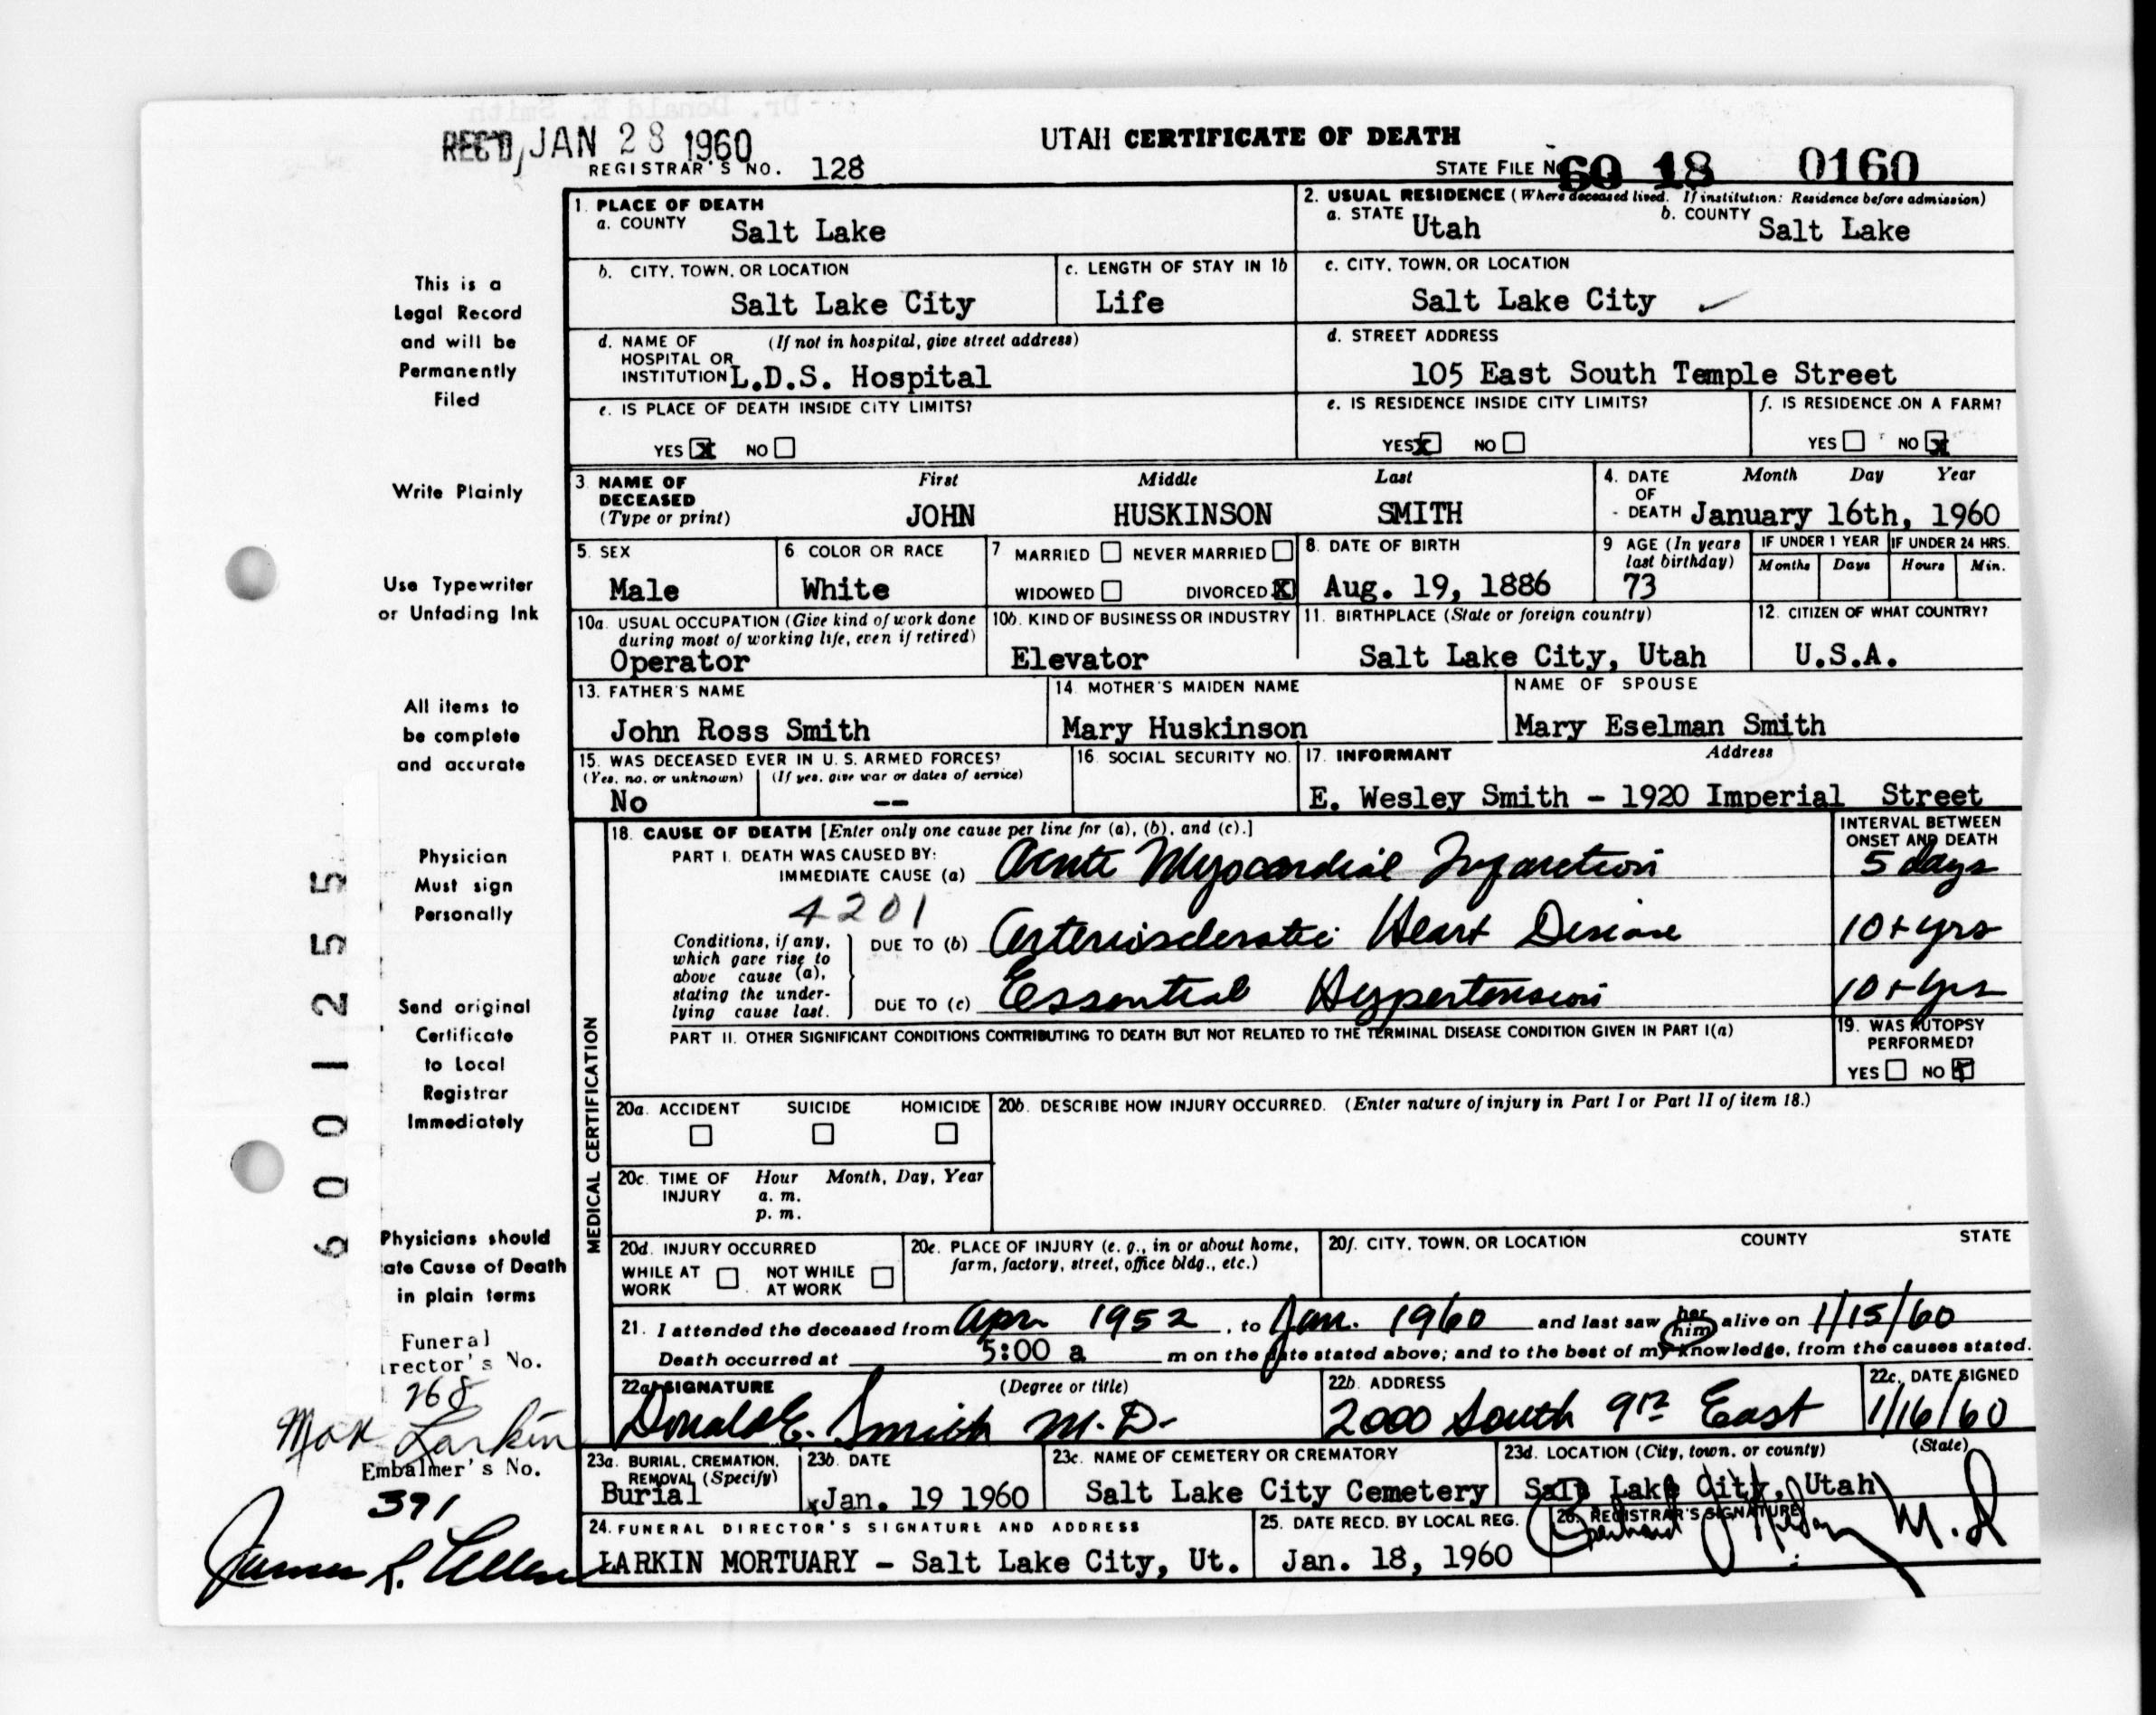 REC'D JAN 28 1960
UTAH CERTIFICATE OF DEATH
REGISTRAR'S NO. 128
STATE FILE NO. 60 18 0160
1. PLACE OF DEATH
a. COUNTY Salt Lake
2. USUAL RESIDENCE (Where deceased lived. If institution: Residence before admission)
a. STATE Utah b. COUNTY Salt Lake
b. CITY, TOWN, OR LOCATION Salt Lake City
c. LENGTH OF STAY IN 1b Life
c. CITY, TOWN, OR LOCATION Salt Lake City
d. NAME OF (If not in hospital, give street address)
HOSPITAL OR
INSTITUTION L.D.S. Hospital
d. STREET ADDRESS
105 East South Temple Street
e. IS PLACE OF DEATH INSIDE CITY LIMITS?
YES X NO
e. IS RESIDENCE INSIDE CITY LIMITS?
YES X NO
f. IS RESIDENCE ON A FARM?
YES NO X
3. NAME OF DECEASED (Type or print)
First Middle Last
JOHN HUSKINSON SMITH
4. DATE OF DEATH Month Day Year
January 16th, 1960
5. SEX Male
6. COLOR OR RACE White
7 MARRIED NEVER MARRIED
WIDOWED DIVORCED X
8. DATE OF BIRTH Aug. 19, 1886
9 AGE (In years last birthday) 73
IF UNDER 1 YEAR Months Days
IF UNDER 24 HRS. Hours Min.
10a. USUAL OCCUPATION (Give kind of work done during most of working life, even if retired)
Operator
10b. KIND OF BUSINESS OR INDUSTRY
Elevator
11. BIRTHPLACE (State or foreign country)
Salt Lake City, Utah
12. CITIZEN OF WHAT COUNTRY?
U.S.A.
13. FATHER'S NAME
John Ross Smith
14. MOTHER'S MAIDEN NAME
Mary Huskinson
NAME OF SPOUSE
Mary Eselman Smith
15. WAS DECEASED EVER IN U. S. ARMED FORCES?
(Yes, no, or unknown) (If yes, give war or dates of service)
No --
16. SOCIAL SECURITY NO.
17. INFORMANT Address
E. Wesley Smith - 1920 Imperial Street
MEDICAL CERTIFICATION
18. CAUSE OF DEATH [Enter only one cause per line for (a), (b), and (c).]
INTERVAL BETWEEN ONSET AND DEATH
PART I. DEATH WAS CAUSED BY:
IMMEDIATE CAUSE (a) Acute Myocardial Infarction 5 days
4201
Conditions, if any, which gave rise to above cause (a), stating the underlying cause last.
DUE TO (b) Arteriosclerotic Heart Disease 10+ yrs
DUE TO (c) Essential Hypertension 10+ yrs
PART II. OTHER SIGNIFICANT CONDITIONS CONTRIBUTING TO DEATH BUT NOT RELATED TO THE TERMINAL DISEASE CONDITION GIVEN IN PART I(a)
19. WAS AUTOPSY PERFORMED?
YES NO X
20a. ACCIDENT SUICIDE HOMICIDE
20b. DESCRIBE HOW INJURY OCCURRED. (Enter nature of injury in Part I or Part II of item 18.)
20c. TIME OF INJURY Hour Month, Day, Year
a. m.
p. m.
20d. INJURY OCCURRED
WHILE AT WORK NOT WHILE AT WORK
20e. PLACE OF INJURY (e. g., in or about home, farm, factory, street, office bldg., etc.)
20f. CITY, TOWN, OR LOCATION COUNTY STATE
21. I attended the deceased from Apr 1952, to Jan. 1960 and last saw her him alive on 1/15/60
Death occurred at 5:00 a m on the date stated above; and to the best of my knowledge, from the causes stated.
22a. SIGNATURE (Degree or title)
Donald E. Smith M.D.
22b. ADDRESS
2000 South 9th East
22c. DATE SIGNED
1/16/60
23a. BURIAL, CREMATION, REMOVAL (Specify)
Burial
23b. DATE
Jan. 19 1960
23c. NAME OF CEMETERY OR CREMATORY
Salt Lake City Cemetery
23d. LOCATION (City, town, or county) (State)
Salt Lake City, Utah
24. FUNERAL DIRECTOR'S SIGNATURE AND ADDRESS
LARKIN MORTUARY - Salt Lake City, Ut.
25. DATE RECD. BY LOCAL REG.
Jan. 18, 1960
26. REGISTRAR'S SIGNATURE
M.D
This is a
Legal Record
and will be
Permanently
Filed
Write Plainly
Use Typewriter
or Unfading Ink
All items to
be complete
and accurate
Physician
Must sign
Personally
Send original
Certificate
to Local
Registrar
Immediately
Physicians should
ate Cause of Death
in plain terms
Funeral
irector's No.
268
Max Larkin
Embalmer's No.
391
James R.
6001255